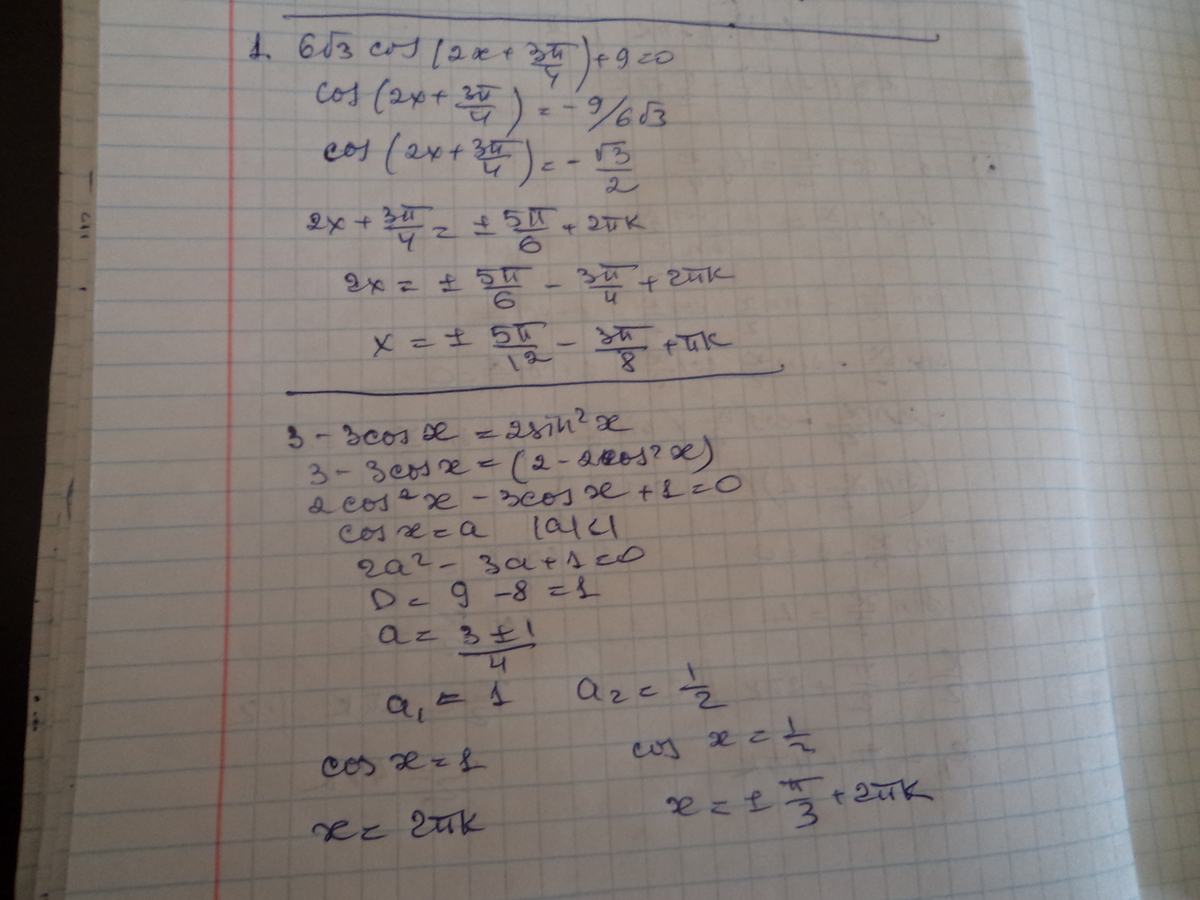 1. 6√3 cos (2x + 3π/4) + 9 = 0
cos (2x + 3π/4) = - 9/6√3
cos (2x + 3π/4) = - √3/2
2x + 3π/4 = ± 5π/6 + 2πk
2x = ± 5π/6 - 3π/4 + 2πk
x = ± 5π/12 - 3π/8 + πk
3 - 3cos x = 2sin² x
3 - 3cos x = (2 - 2cos² x)
2cos² x - 3cos x + 1 = 0
cos x = a |a|<1
2a² - 3a + 1 = 0
D = 9 - 8 = 1
a = 3 ± 1/4
a₁ = 1 a₂ = 1/2
cos x = 1 cos x = 1/2
x = 2πk x = ± π/3 + 2πk